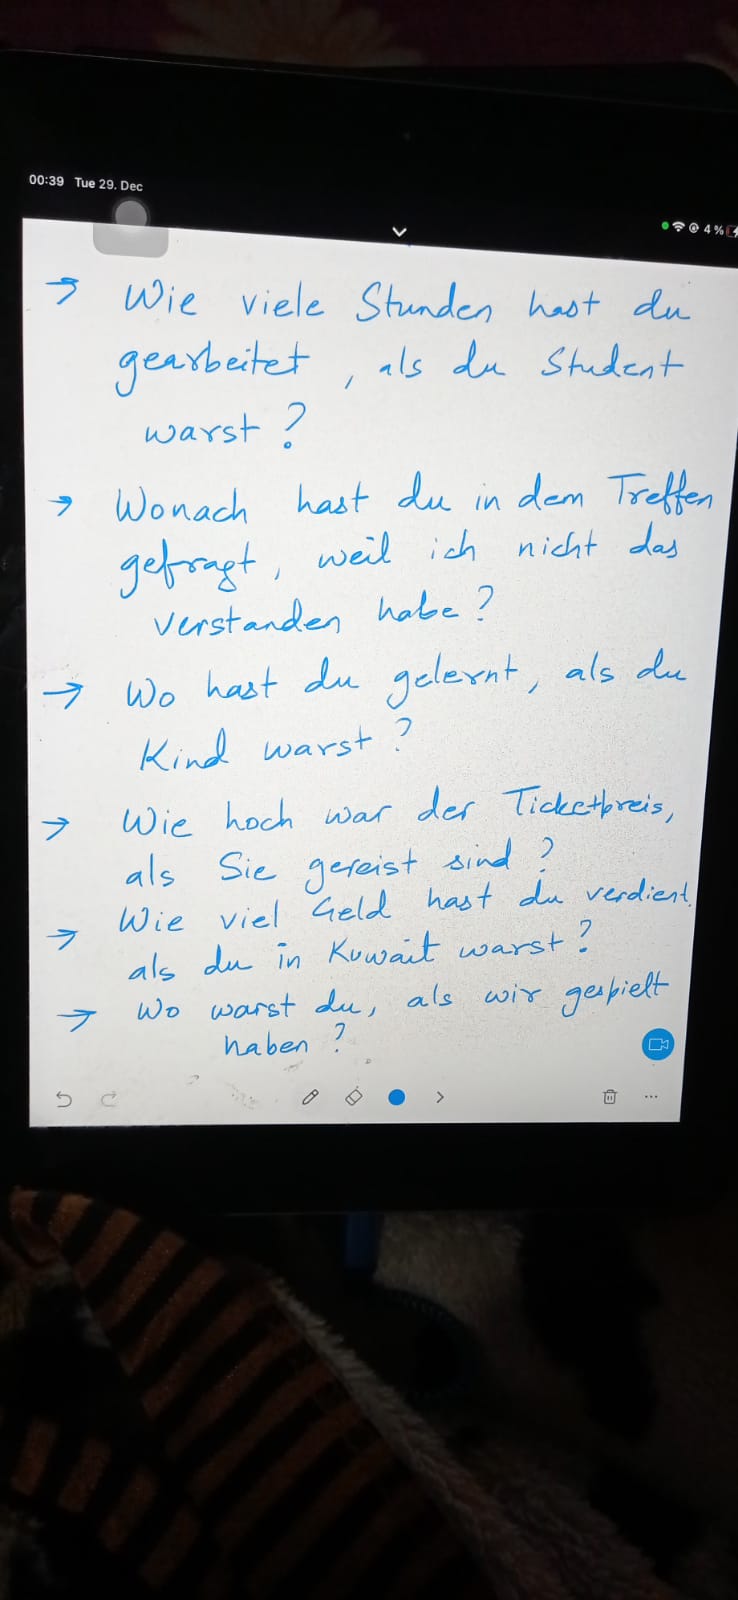 00:39 Tue 29. Dec
4 %
→ Wie viele Stunden hast du
gearbeitet, als du Student
warst?
→ Wonach hast du in dem Treffen
gefragt, weil ich nicht das
verstanden habe?
→ Wo hast du gelernt, als du
Kind warst?
→ Wie hoch war der Ticketpreis,
als Sie gereist sind?
→ Wie viel Geld hast du verdient,
als du in Kuwait warst?
→ Wo warst du, als wir gespielt
haben?